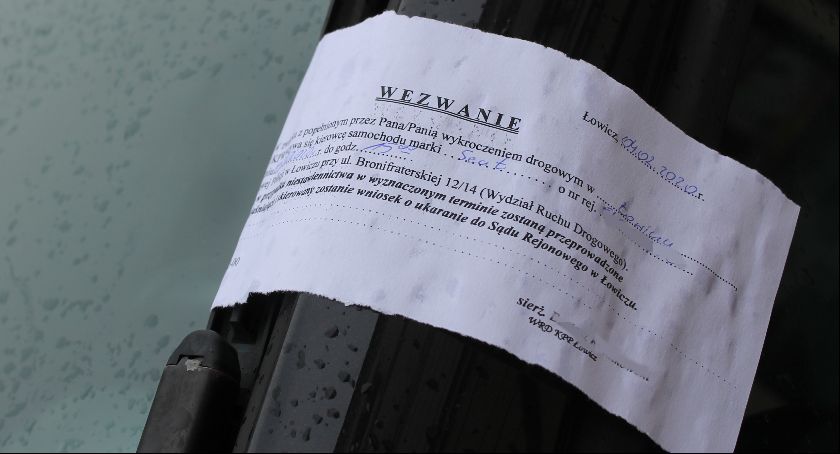 WEZWANIE
Łowicz, 04.02.2020 r.
z popełnionym przez Pana/Panią wykroczeniem drogowym w
wa się kierowcę samochodu marki Seat o nr rej.
r. do godz.
w Łowiczu przy ul. Bronifraterskiej 12/14 (Wydział Ruchu Drogowego).
niestawiennictwa w wyznaczonym terminie zostaną przeprowadzone
i skierowany zostanie wniosek o ukaranie do Sądu Rejonowego w Łowiczu.
sierż.
WRD KPP Łowicz